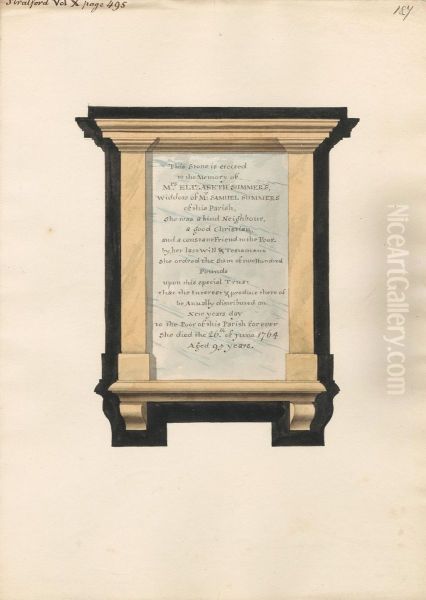 Stratford Vol X page 495
187
This Stone is erected
to the Memory of
Mrs ELIZABETH SUMMERS,
Widdow of Mr SAMUEL SUMMERS
of this Parish,
She was a kind Neighbour,
a good Christian,
and a constant Friend to the Poor,
by her last Will & Testament
She ordred the Sum of two Hundred
Pounds
upon this special Trust
that the Interest & produce there of
be Anually distributed on
New years day
to the Poor of this Parish for ever
She died the 26th of June 1764
Aged 95 years.
NiceArtGallery.com